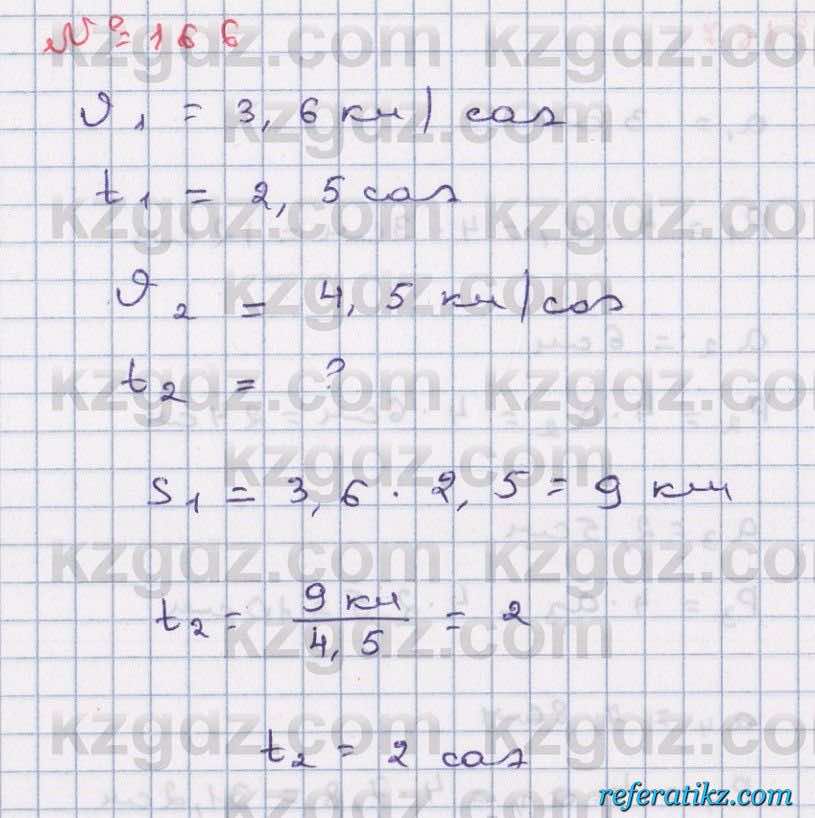 № 166
ϑ₁ = 3,6 км/саг
t₁ = 2,5 саг
ϑ₂ = 4,5 км/саг
t₂ = ?
S₁ = 3,6 · 2,5 = 9 км
t₂ = 9 км / 4,5 = 2
t₂ = 2 саг
kzgdz.com
referatikz.com